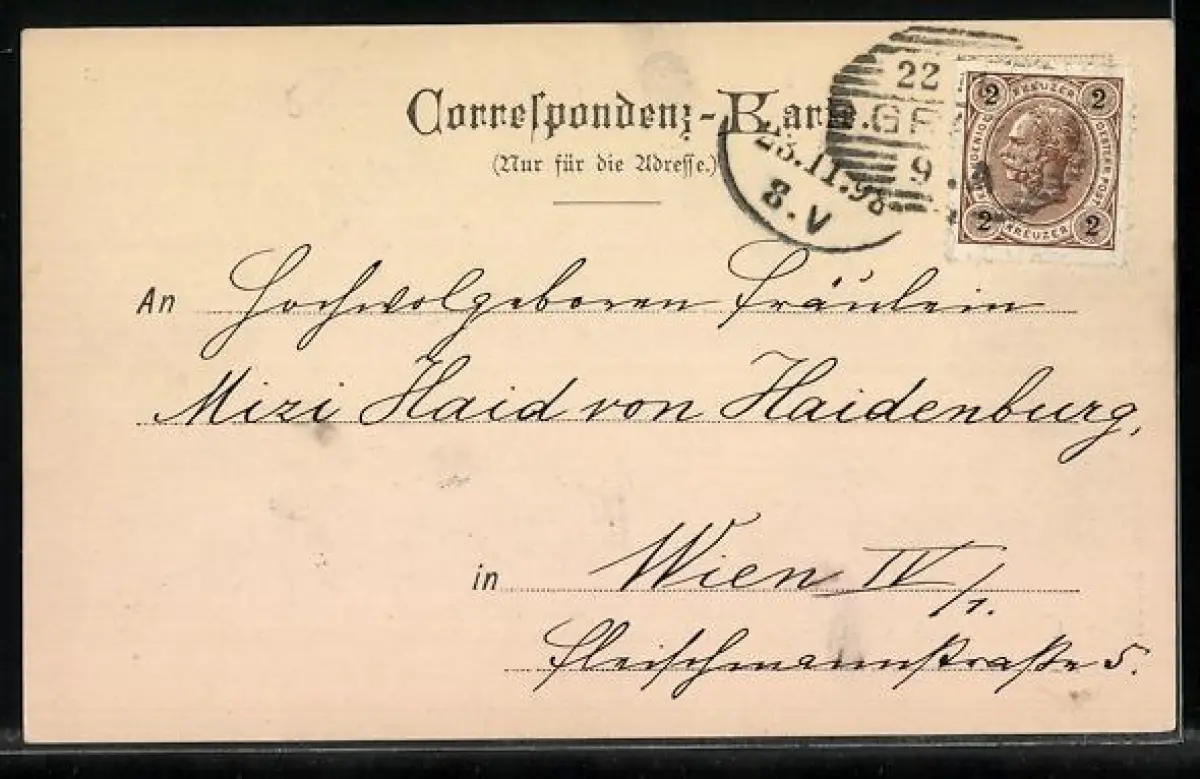 Correſpondenz-Karte.
(Nur für die Adreſſe.)
22
9
23.11.98
8.V
2 KREUZER 2
2 KREUZER 2
An Hochwolgeboren Fräulein
Mizi Haid von Haidenburg,
in Wien IV/1.
Fleischmannstraße 5.